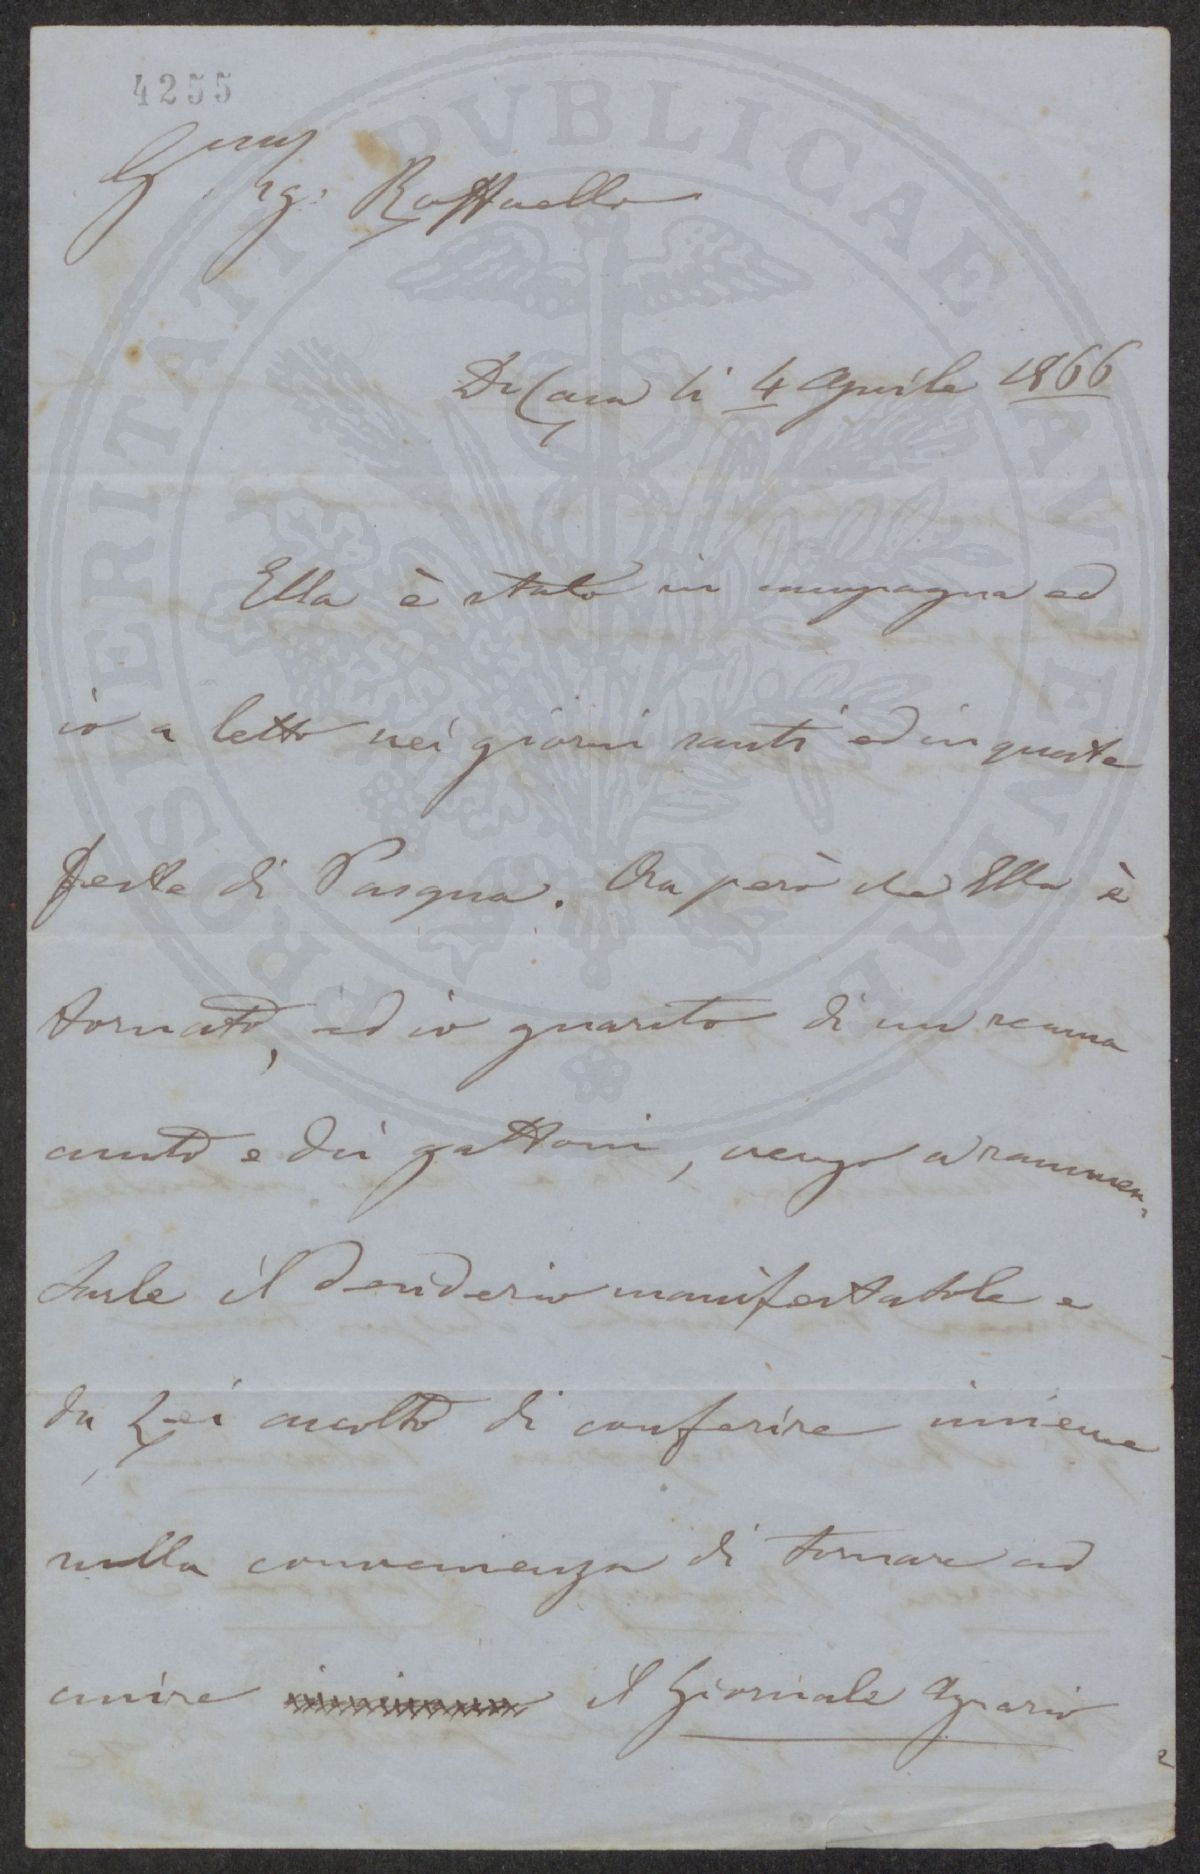 4255
Gen
Sig: Raffaello
Di Casa li 4 Aprile 1866
Ella è stato in campagna ed
io a letto nei giorni santi ed in queste
feste di Pasqua. Ora però che Ella è
tornato, ed io guarito di un reuma
acuto e di gattoni, vengo a rammen-
tarle il desiderio manifestatole e
da Lei accolto di conferire insieme
sulla convenienza di tornare ad
unire il Giornale Agrario
PROSPERITATI PVBLICAE AVGENDAE